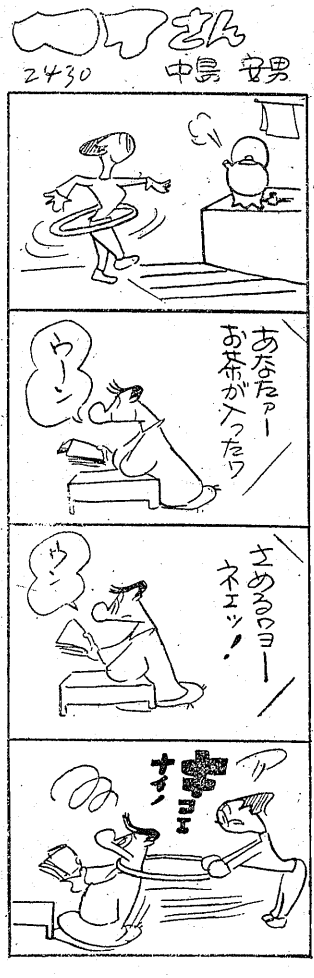 さん
2430
中島 安男
あなたァー
お茶が入ったワ
ウーン
さめるワヨー
ネェッ!
ウン
アッ
キコエ
ナイノ